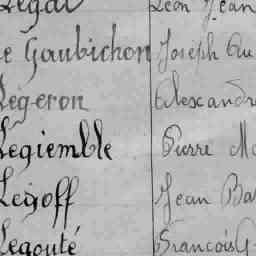 Legal Léon Jean
Le Gaubichon Joseph Au
Légeron Alexandre
Legiemble Pierre Ma
Legoff Jean Bap
Legouté François G